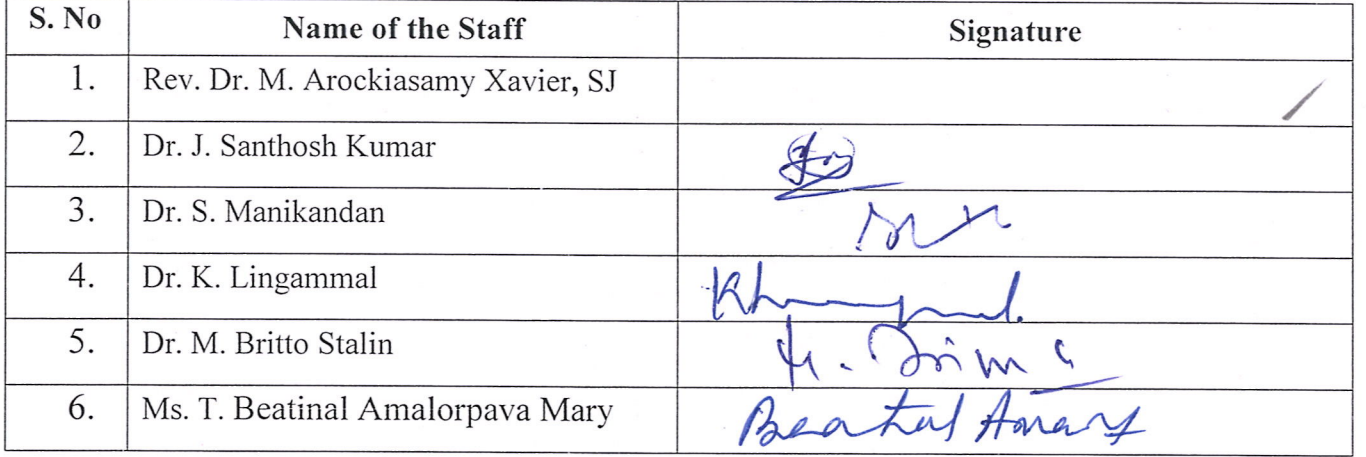 S. No Name of the Staff Signature
1. Rev. Dr. M. Arockiasamy Xavier, SJ
2. Dr. J. Santhosh Kumar
3. Dr. S. Manikandan
4. Dr. K. Lingammal
5. Dr. M. Britto Stalin
6. Ms. T. Beatinal Amalorpava Mary